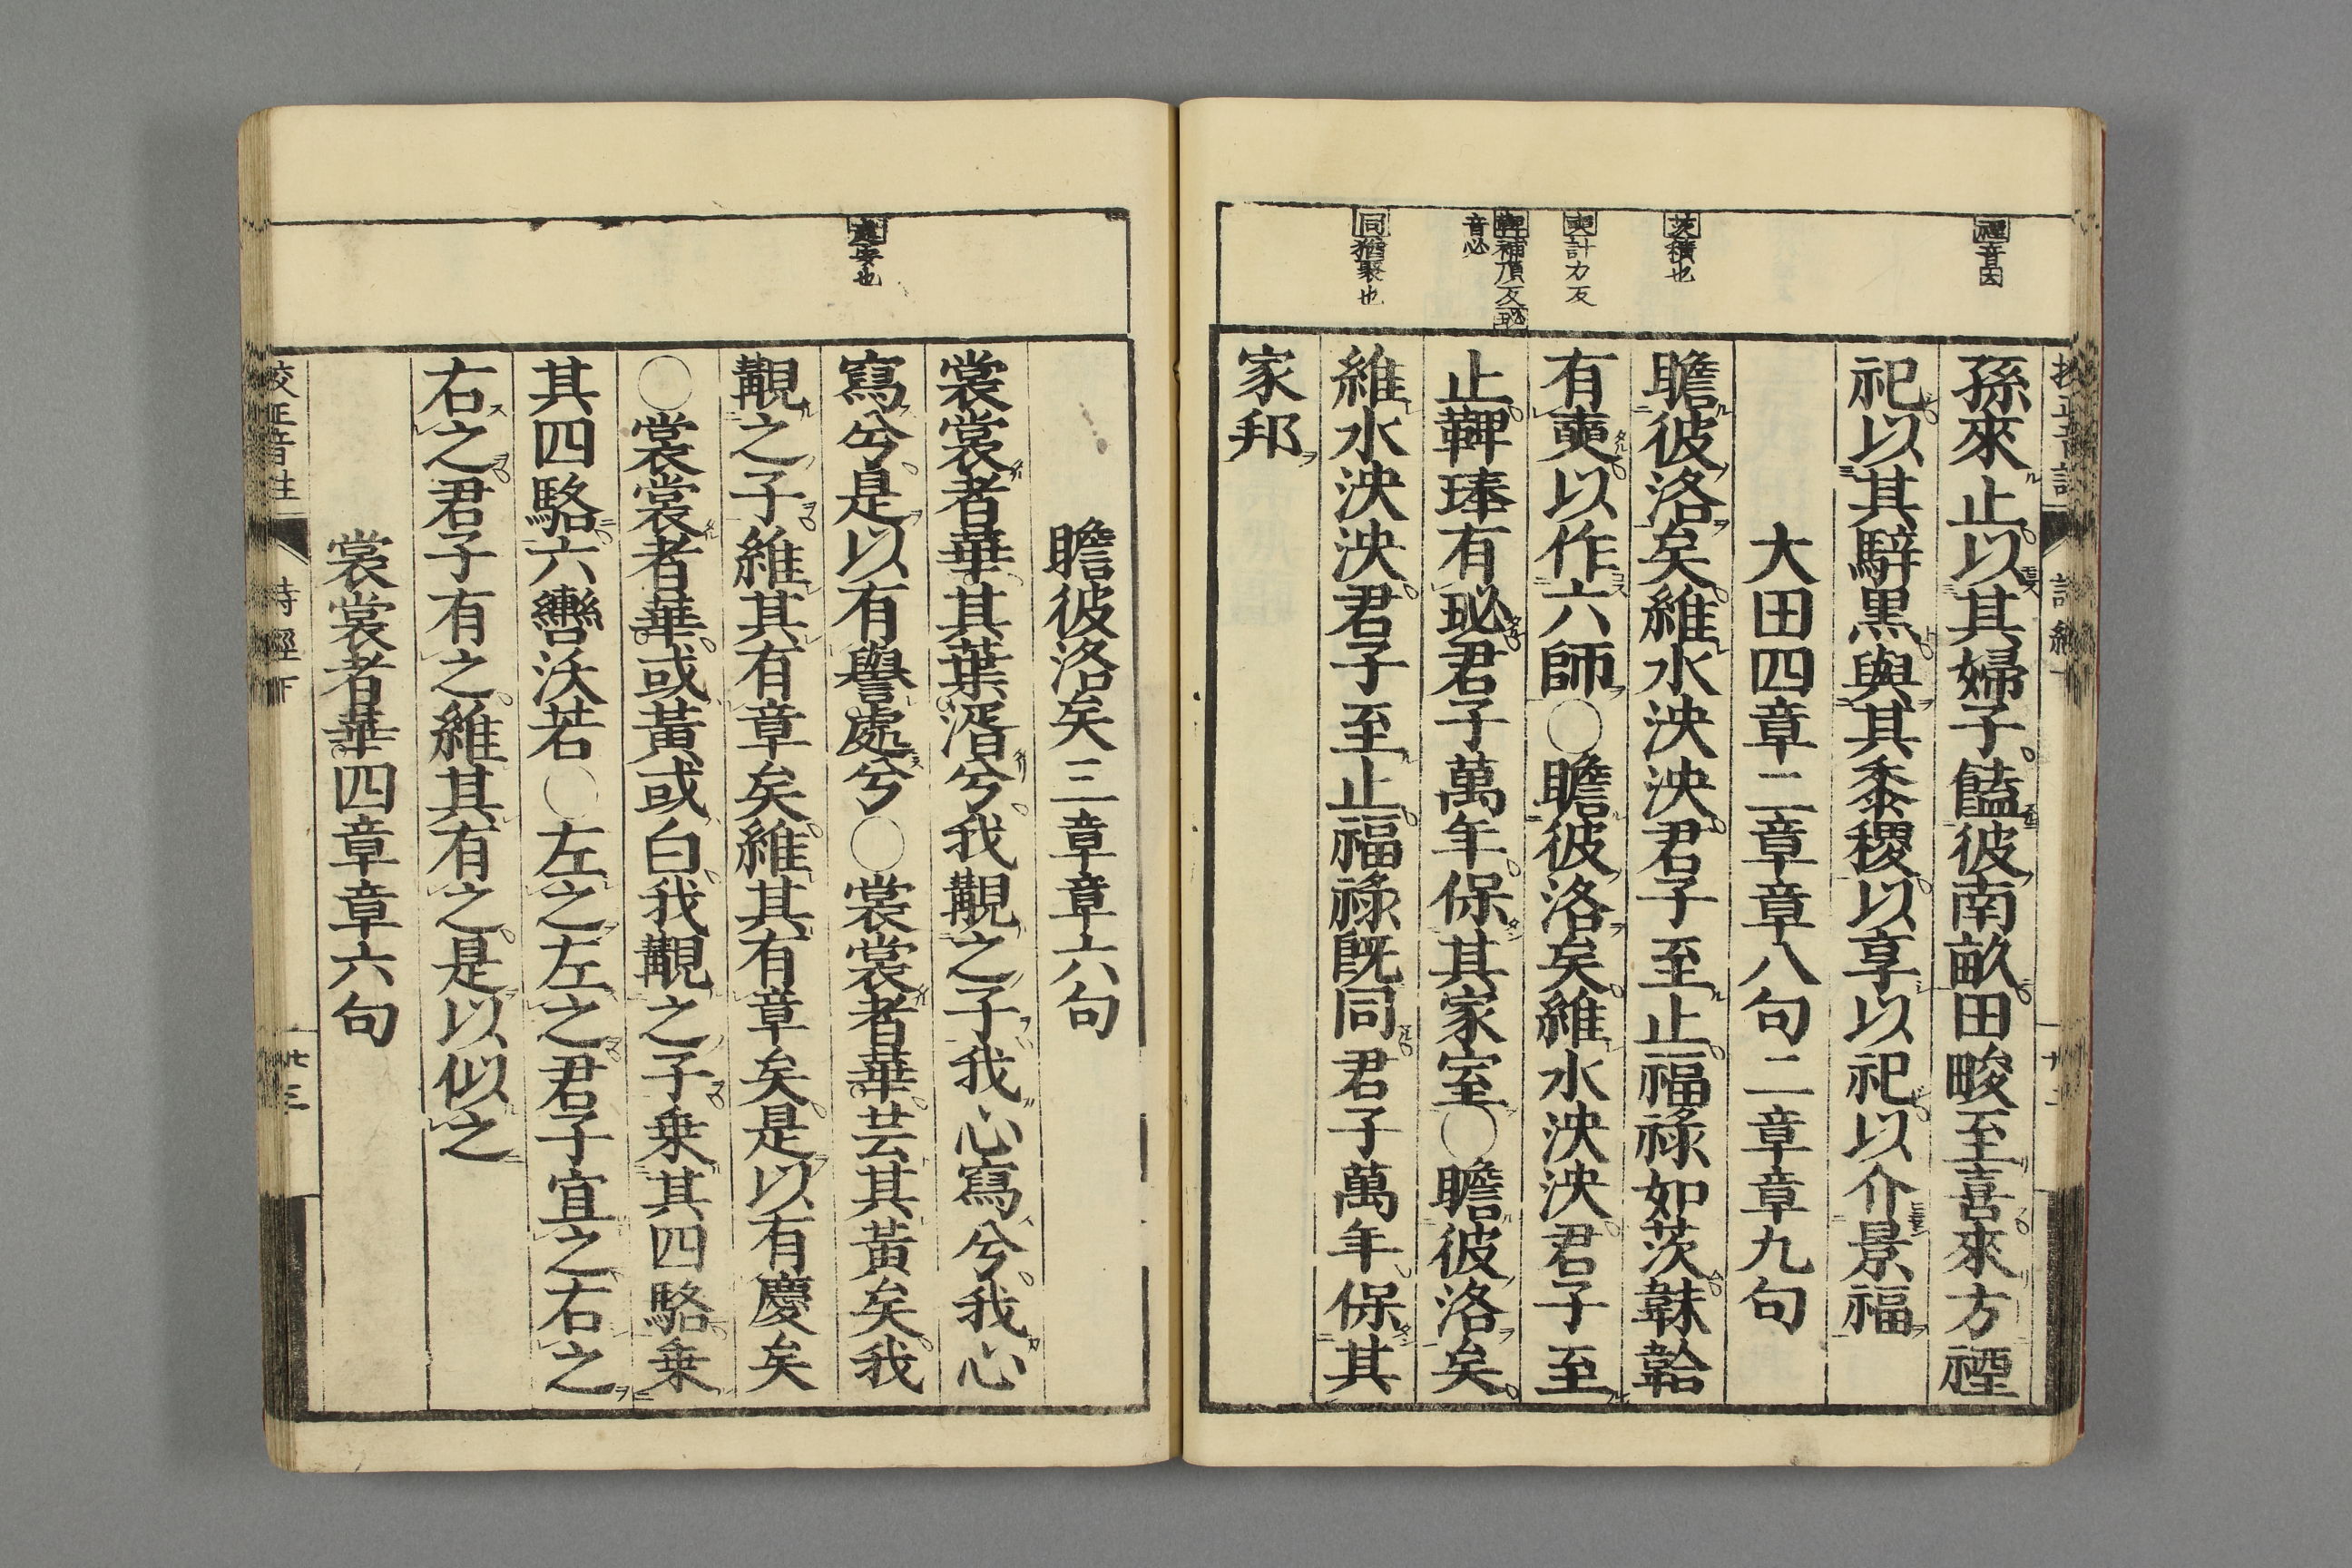 禋音因
茨積也
奭計力反
鞞補頂反珌
音必
同猶聚也
孫來止以其婦子饁彼南畝田畯至喜來方禋
祀以其騂黒與其黍稷以享以祀以介景福
大田四章二章章八句二章章九句
瞻彼洛矣維水泱泱君子至止福祿如茨韎韐
有奭以作六師○瞻彼洛矣維水泱泱君子至
止鞞琫有珌君子萬年保其家室○瞻彼洛矣
維水泱泱君子至止福祿既同君子萬年保其
家邦
處安也
瞻彼洛矣三章章六句
裳裳者華其葉湑兮我覯之子我心寫兮我心
寫兮是以有譽處兮○裳裳者華芸其黃矣我
覯之子維其有章矣維其有章矣是以有慶矣
○裳裳者華或黃或白我覯之子乗其四駱乗
其四駱六轡沃若○左之左之君子宜之右之
右之君子有之維其有之是以似之
裳裳者華四章章六句
校正音註 詩經下 廿三